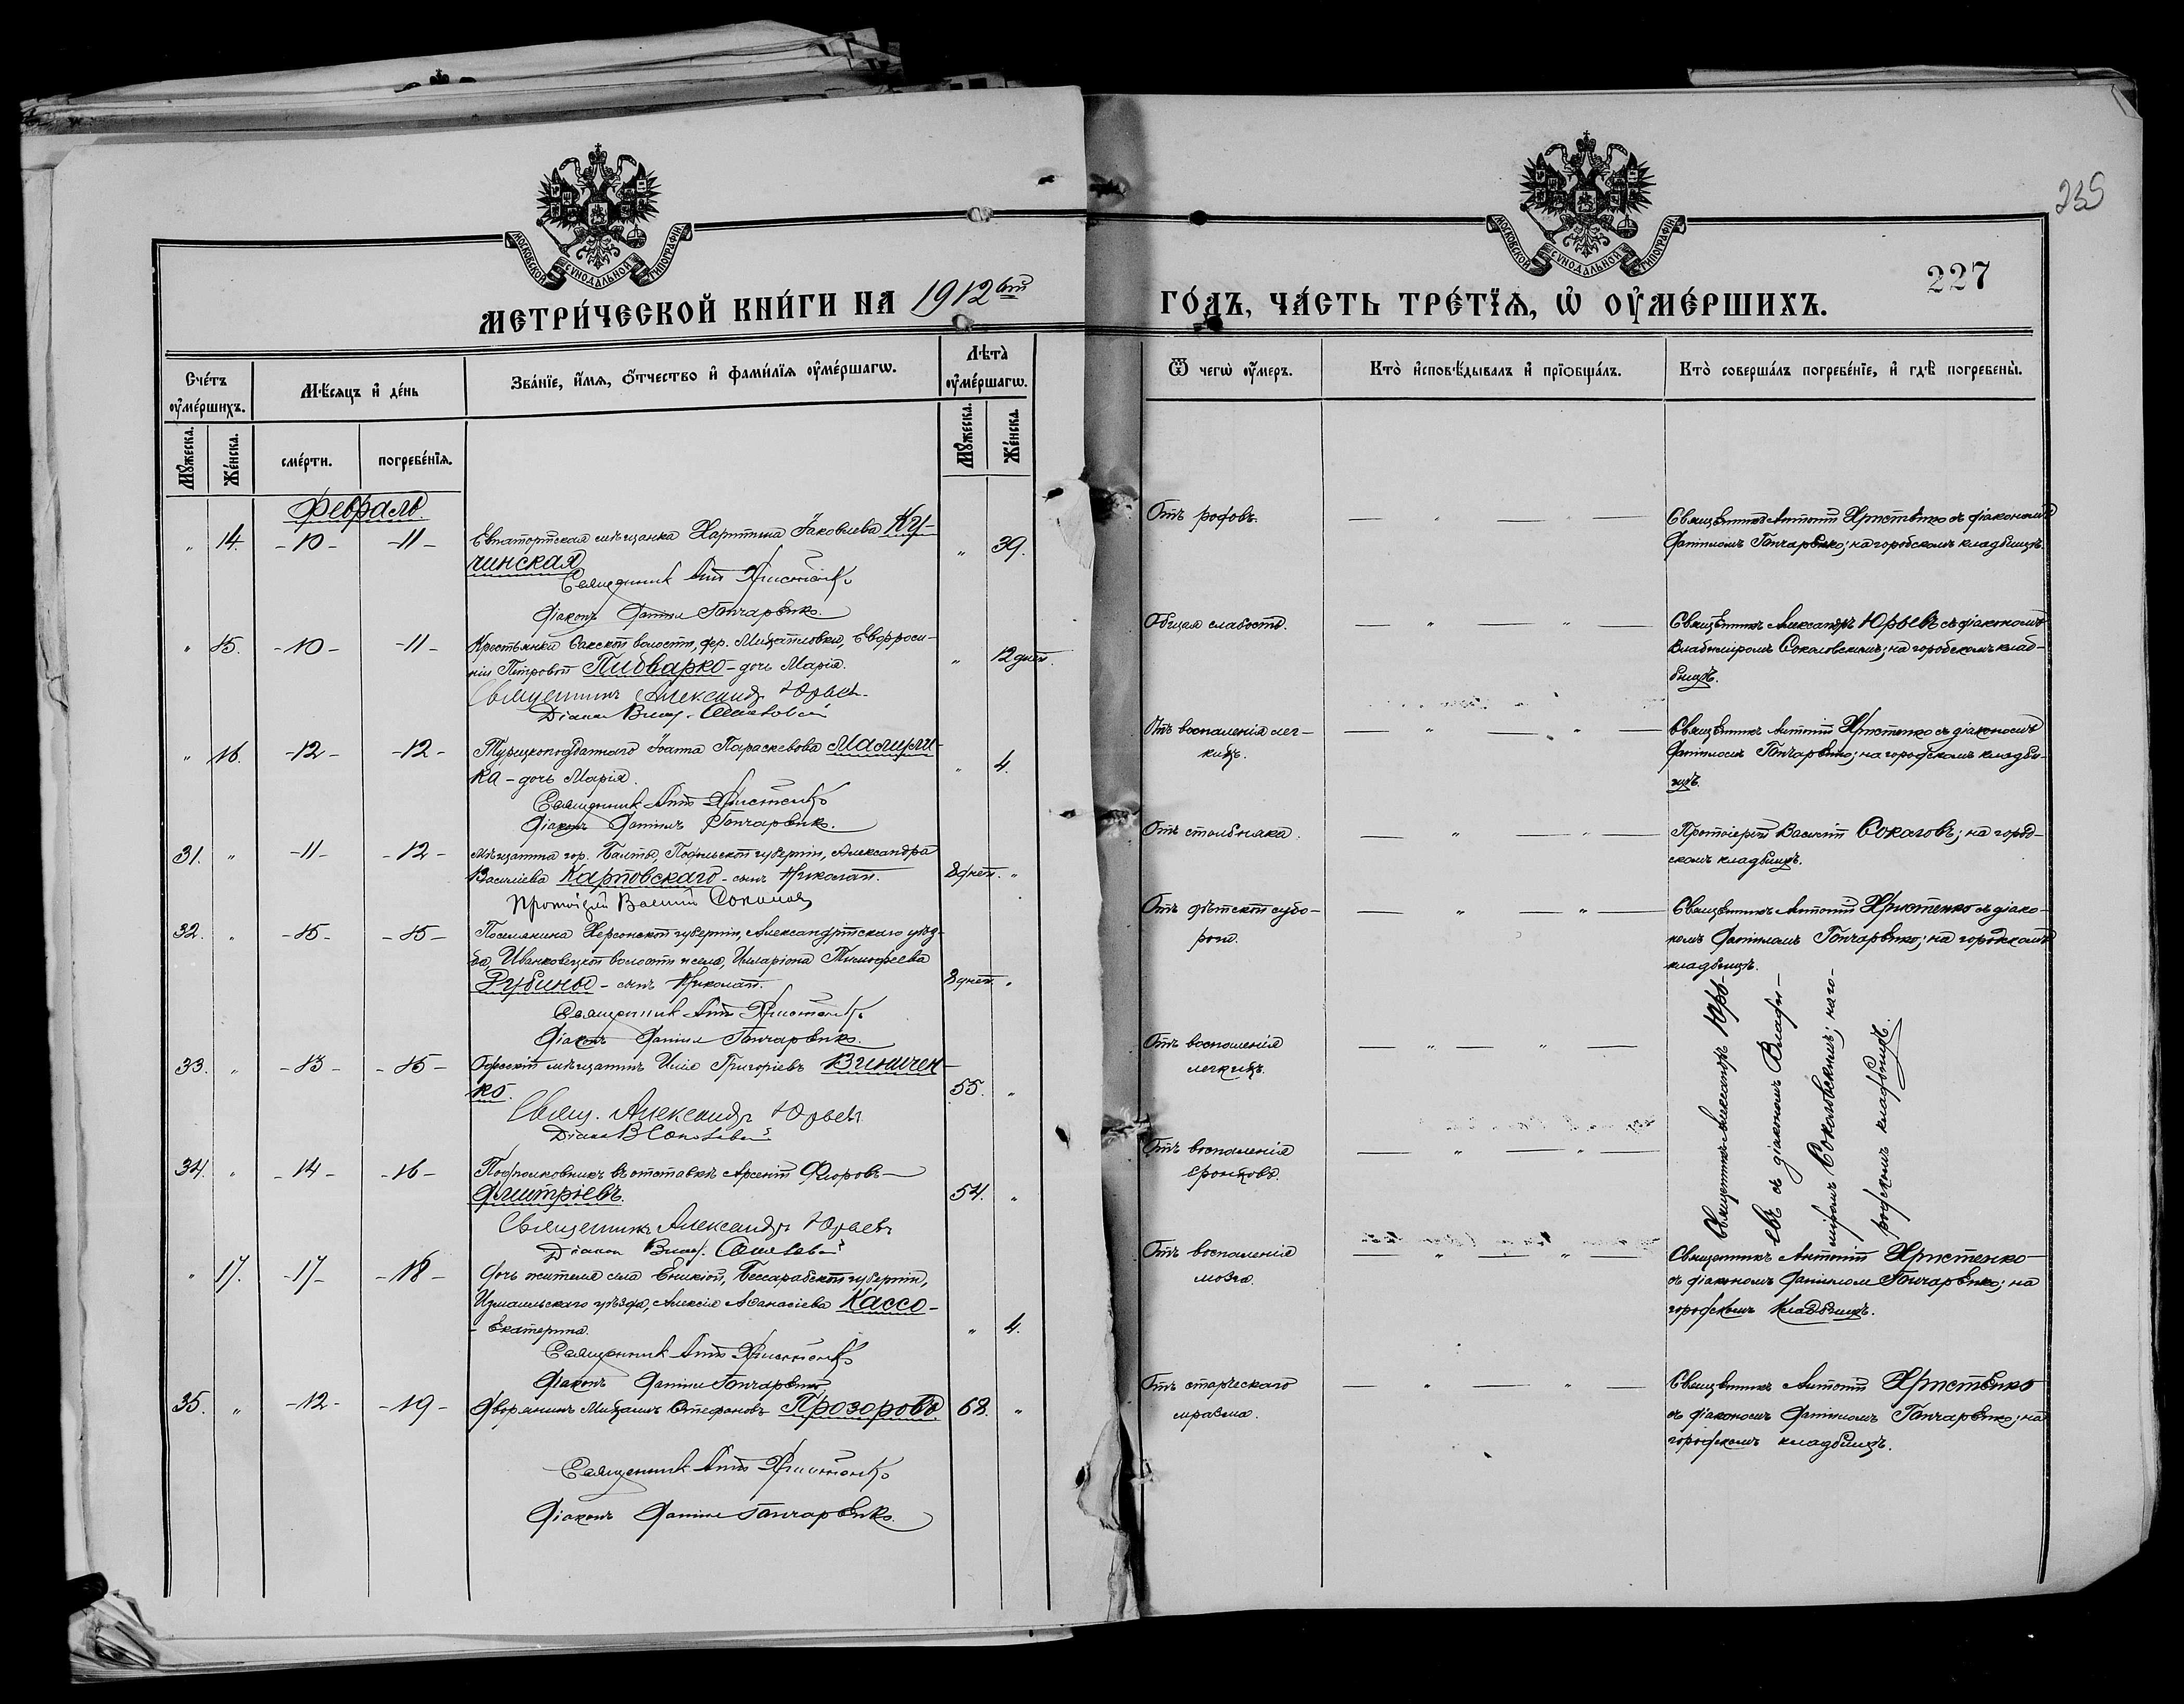 МОСКОВСКОЙ СѴНОДАЛЬНОЙ ТИПОГРАФІИ
МОСКОВСКОЙ СѴНОДАЛЬНОЙ ТИПОГРАФІИ
235
227
МЕТРИ́ЧЕСКОЙ КНИ́ГИ НА 1912 ГО́ДЪ, ЧА́СТЬ ТРЕ́ТЇѦ, Ѡ҆ ОУ҆МЕ́РШИХЪ.
Сче́тъ оу҆ме́ршихъ.
Мѣ́сяцъ и҆ де́нь
Зва́нїе, и҆́мя, о҆́тчество и҆ фами́лїя оу҆ме́ршагѡ.
Лѣта̀ оу҆ме́ршагѡ.
Ѿ чегѡ̀ оу҆́меръ.
Кто̀ и҆сповѣ́дывалъ и҆ прїѡбща́лъ.
Кто̀ соверша́лъ погребе́нїе, и҆ гдѣ̀ погребены̀.
Мꙋ́жеска.
Же́нска.
сме́рти.
погребе́нїя.
Мꙋ́жеска.
Же́нска.
Февраль
" 14. -10- -11- Евпаторійская мѣщанка Харитина Іаковлева Ку-
чинская " 39.
Священникъ Ант Христенко
Діаконъ Даніилъ Гончаренко.
Отъ родовъ.
Священникъ Антоній Христенко съ діакономъ
Даніиломъ Гончаренко; на городскомъ кладбищѣ.
" 15. -10- -11- Крестьянки Сакской волости, дер. Михайловки, Евфроси-
ніи Петровой Пивварко - дочь Марія. " 12 дней.
Священникъ Александръ Юрьевъ
Діаконъ Влад.
Общая слабость.
Священникъ Александръ Юрьевъ съ діакономъ
Владиміромъ Соколовскимъ; на городскомъ клад-
бищѣ.
" 16. -12- -12- Турецкоподданнаго Іоанна Параскевова
ка - дочь Марія. " 4.
Священникъ Ант Христенко
Діаконъ Даніилъ Гончаренко.
Отъ воспаленія лег-
кихъ.
Священникъ Антоній Христенко съ діакономъ
Даніиломъ Гончаренко; на городскомъ кладби-
щѣ.
31. " -11- -12- Мѣщанина гор. Балты, Подольской губерніи, Александра
Василіева Карповскаго - сынъ Николай. 8 дней. "
Протоіерей Василій Соколовъ
Отъ столбняка.
Протоіерей Василій Соколовъ; на город-
скомъ кладбищѣ.
32. " -15- -15- Поселянина Херсонской губерніи, Александрійскаго уѣз-
да, Иванковецкой волости и села, Илларіона Тимофеева
Рубины - сынъ Николай. 8 дней. "
Священникъ Ант Христенко
Діаконъ Даніилъ Гончаренко.
Отъ дѣтской судо-
роги.
Священникъ Антоній Христенко съ діако-
номъ Даніиломъ Гончаренко; на городскомъ
кладбищѣ.
33. " -13- -15- Одесскій мѣщанинъ Илія Григоріевъ Виничен-
ко. 55. "
Свящ. Александръ Юрьевъ
Діаконъ В Соколовскій
Отъ воспаленія
легкихъ.
Священникъ Александръ Юрь-
евъ съ діакономъ Влади-
міромъ Соколовскимъ; на го-
родскомъ кладбищѣ.
34. " -14- -16- Подполковникъ въ отставкѣ Арсеній Флоровъ
Дмитріевъ. 54. "
Священникъ Александръ Юрьевъ
Діаконъ Влад.
Отъ воспаленія
бронховъ.
" 17. -17- -18- Дочь жителя села Еникіой, Бессарабской губерніи,
Измаильскаго уѣзда, Алексія Аѳанасіева Кассо -
- Екатерина. " 4.
Священникъ Ант Христенко
Діаконъ Даніилъ Гончаренко
Отъ воспаленія
мозга.
Священникъ Антоній Христенко
съ діакономъ Даніиломъ Гончаренко; на
городскомъ кладбищѣ.
35. " -12- -19- Дворянинъ Михаилъ Стефановъ Прозоровъ 68. "
Священникъ Ант Христенко
Діаконъ Даніилъ Гончаренко.
Отъ старческаго
маразма.
Священникъ Антоній Христенко
съ діакономъ Даніиломъ Гончаренко; на
городскомъ кладбищѣ.